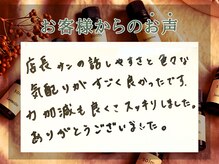 お客様からのお声
店長サンの話しやすさと色々な
気配りがすごく良かったです。
力加減も良くスッキリしました。
ありがとうございました。